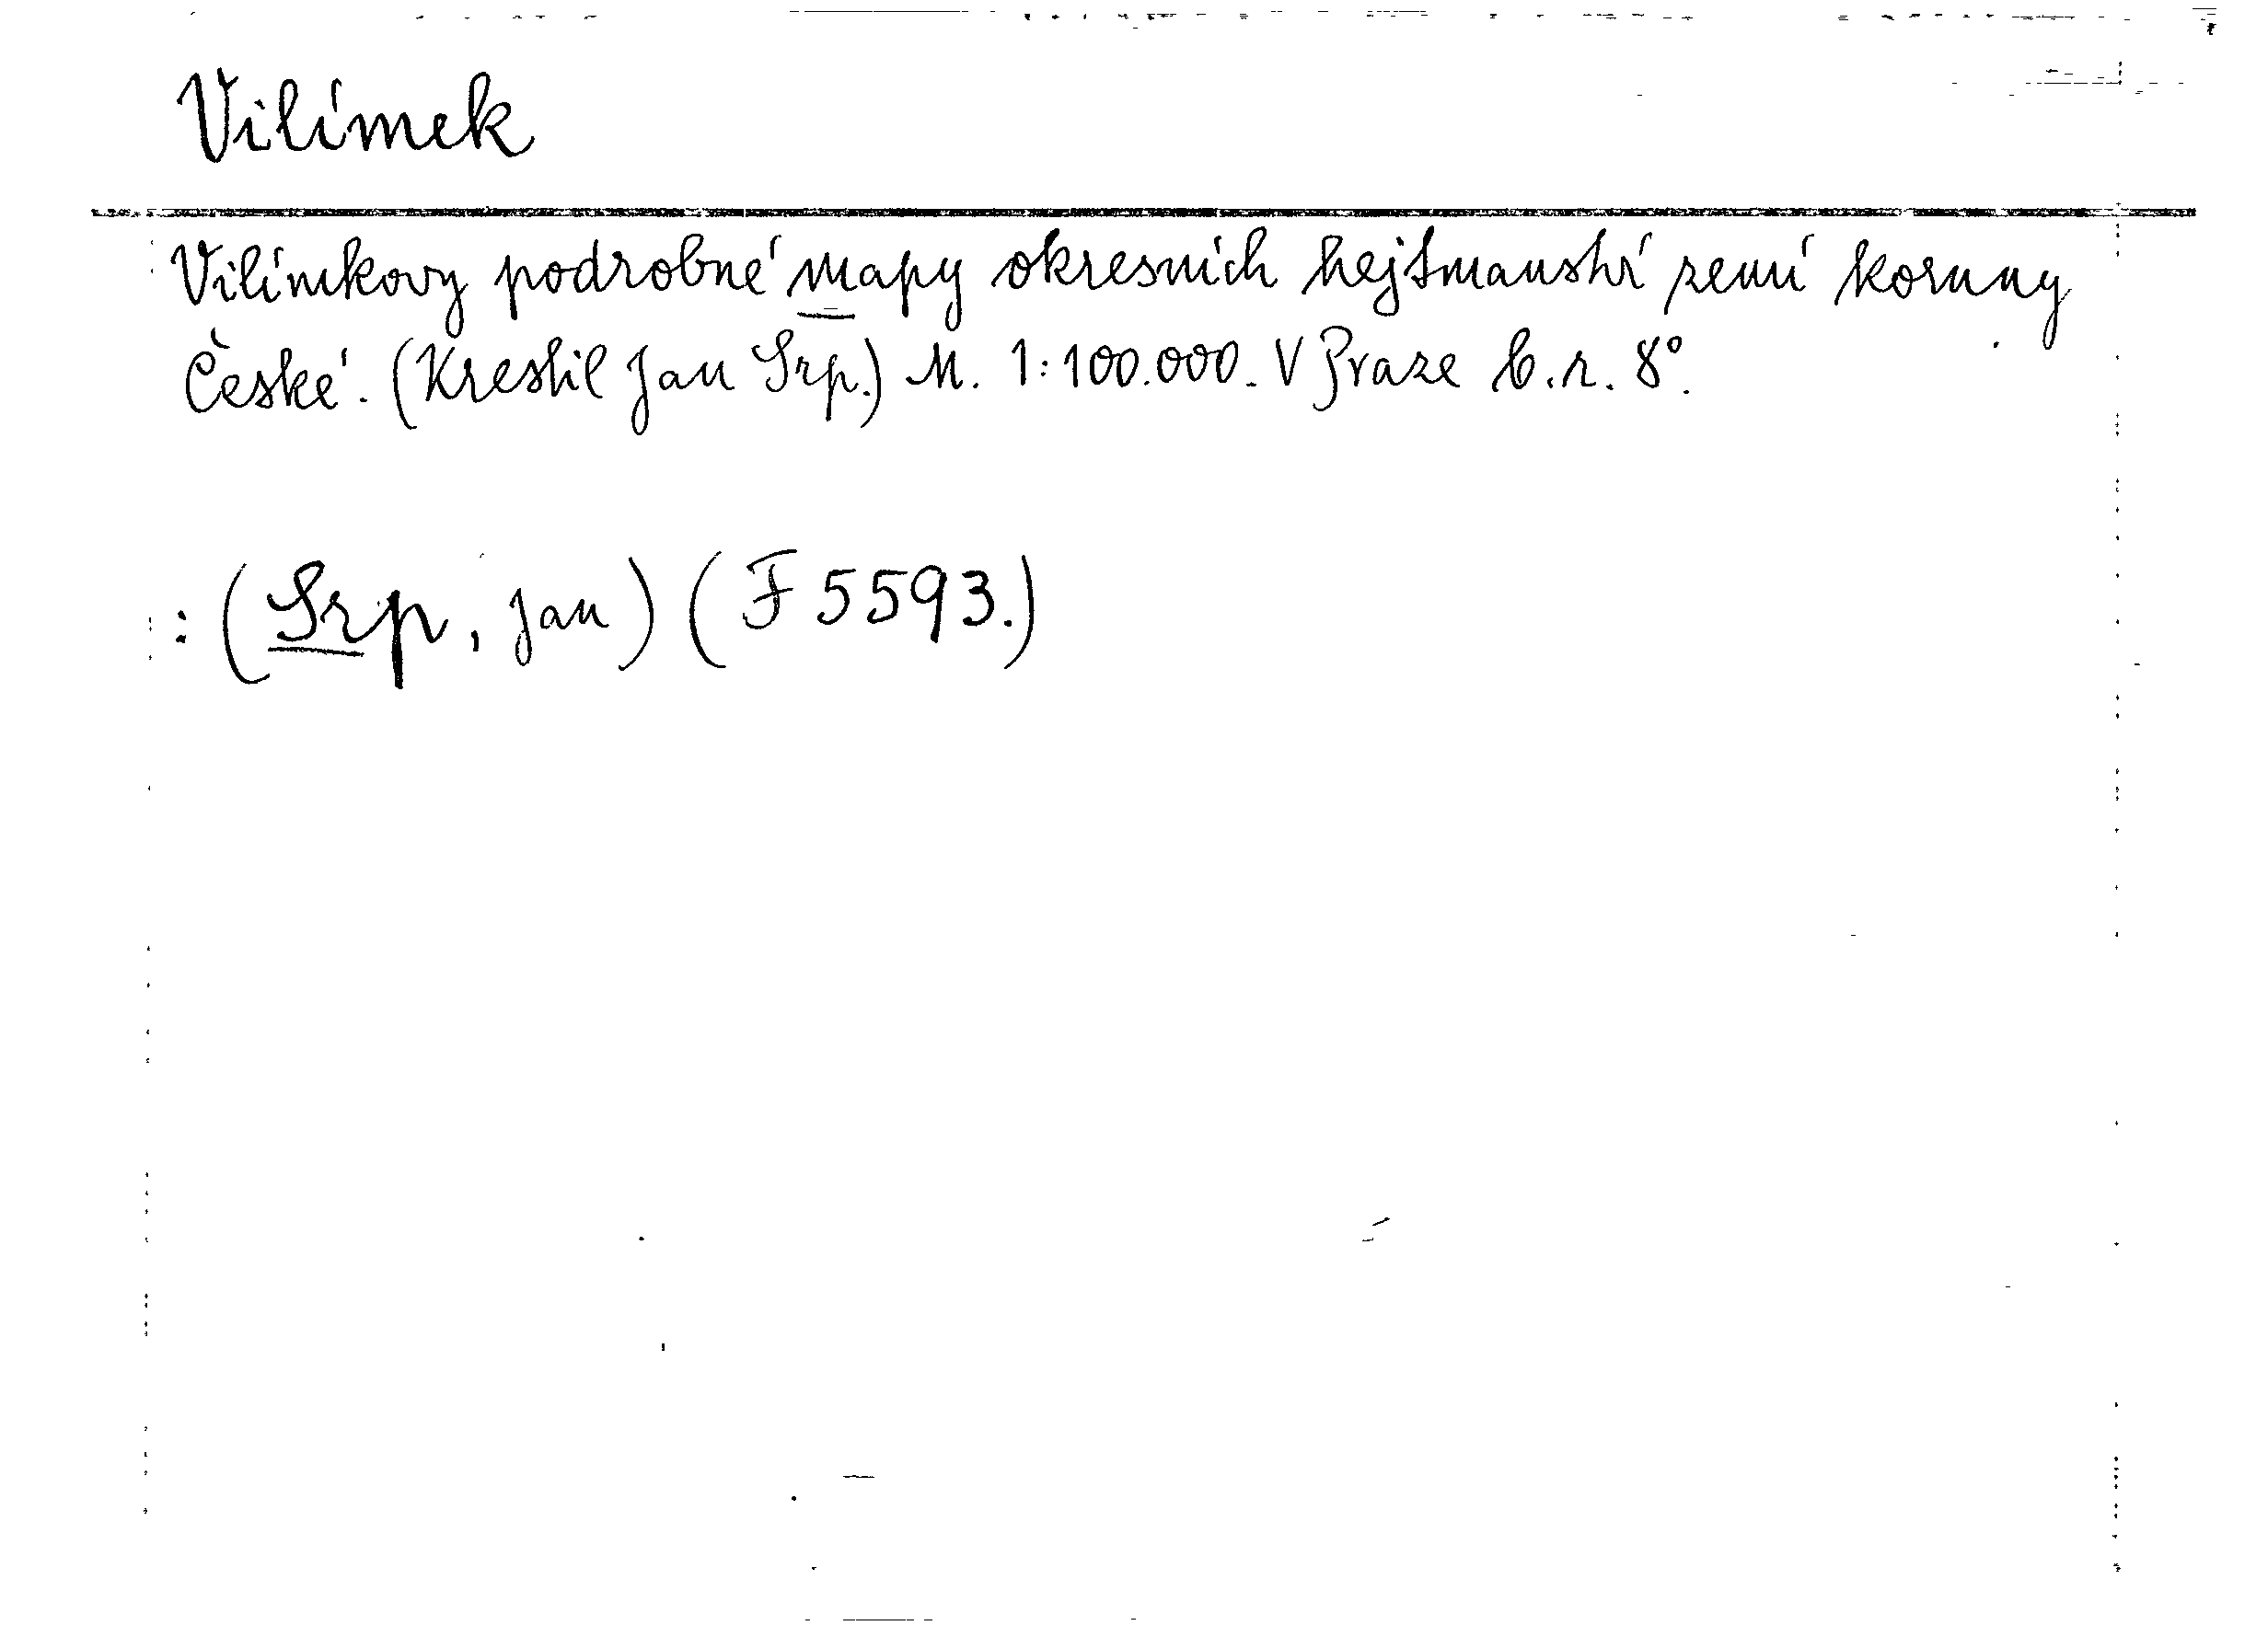 Vilímek
Vilímkovy podrobné mapy okresních hejtmanství zemí koruny
České. (Kreslil Jan Srp.) M. 1:100.000. V Praze b.r. 8°.
: (Srp, Jan) (F 5593.)